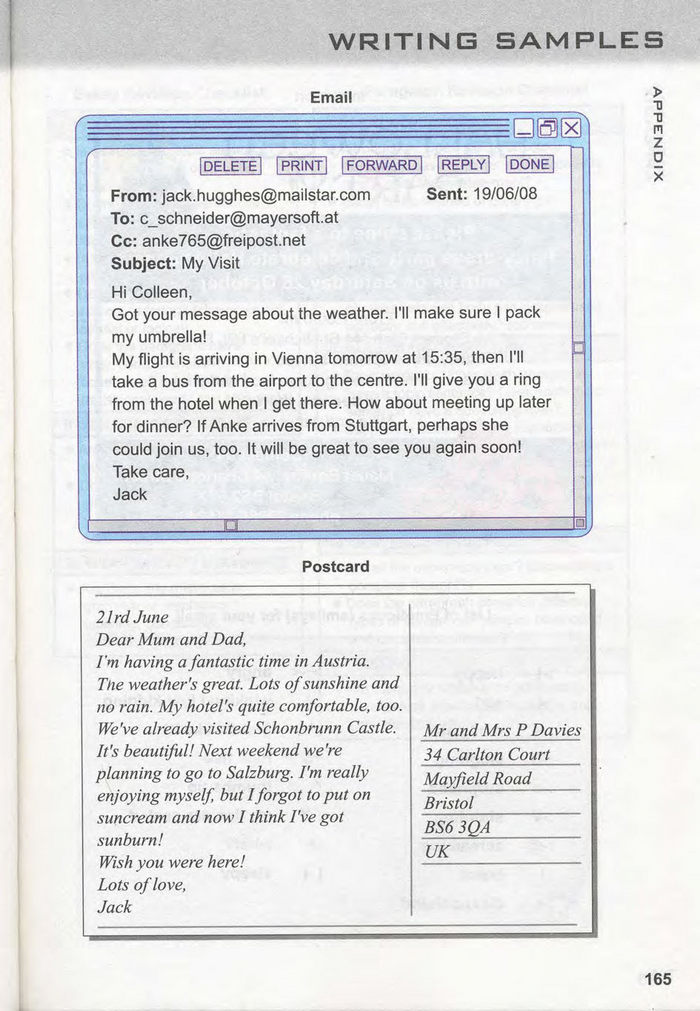 WRITING SAMPLES
APPENDIX
Email
DELETE PRINT FORWARD REPLY DONE
From: jack.hugghes@mailstar.com Sent: 19/06/08
To: c_schneider@mayersoft.at
Cc: anke765@freipost.net
Subject: My Visit
Hi Colleen,
Got your message about the weather. I'll make sure I pack
my umbrella!
My flight is arriving in Vienna tomorrow at 15:35, then I'll
take a bus from the airport to the centre. I'll give you a ring
from the hotel when I get there. How about meeting up later
for dinner? If Anke arrives from Stuttgart, perhaps she
could join us, too. It will be great to see you again soon!
Take care,
Jack
Postcard
21rd June
Dear Mum and Dad,
I'm having a fantastic time in Austria.
The weather's great. Lots of sunshine and
no rain. My hotel's quite comfortable, too.
We've already visited Schonbrunn Castle.
It's beautiful! Next weekend we're
planning to go to Salzburg. I'm really
enjoying myself, but I forgot to put on
suncream and now I think I've got
sunburn!
Wish you were here!
Lots of love,
Jack
Mr and Mrs P Davies
34 Carlton Court
Mayfield Road
Bristol
BS6 3QA
UK
165